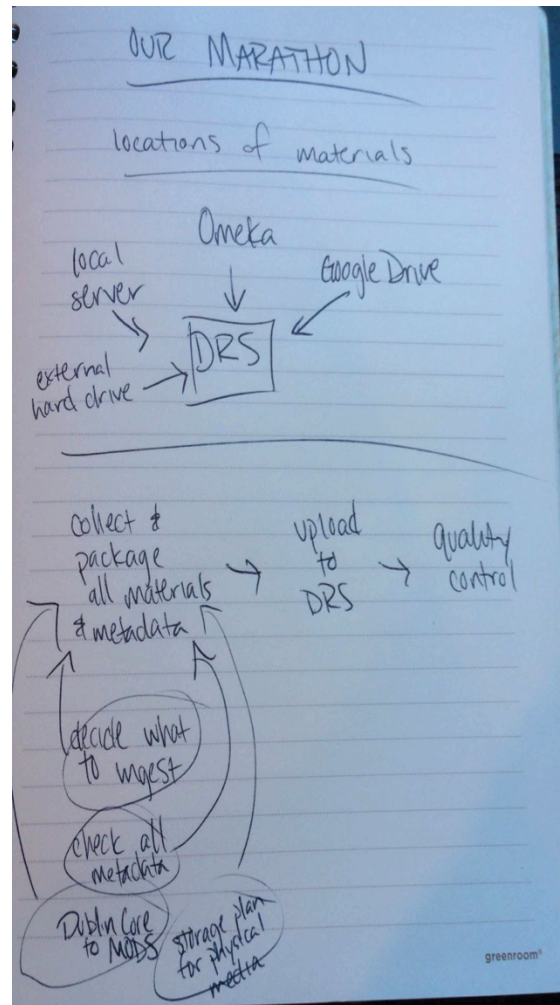 OUR MARATHON
locations of materials
Omeka
local
server
Google Drive
DRS
external
hard drive
collect &
package
all materials
& metadata
upload
to
DRS
quality
control
decide what
to ingest
check all
metadata
Dublin Core
to MODS
storage plan
for physical
media
greenroom®